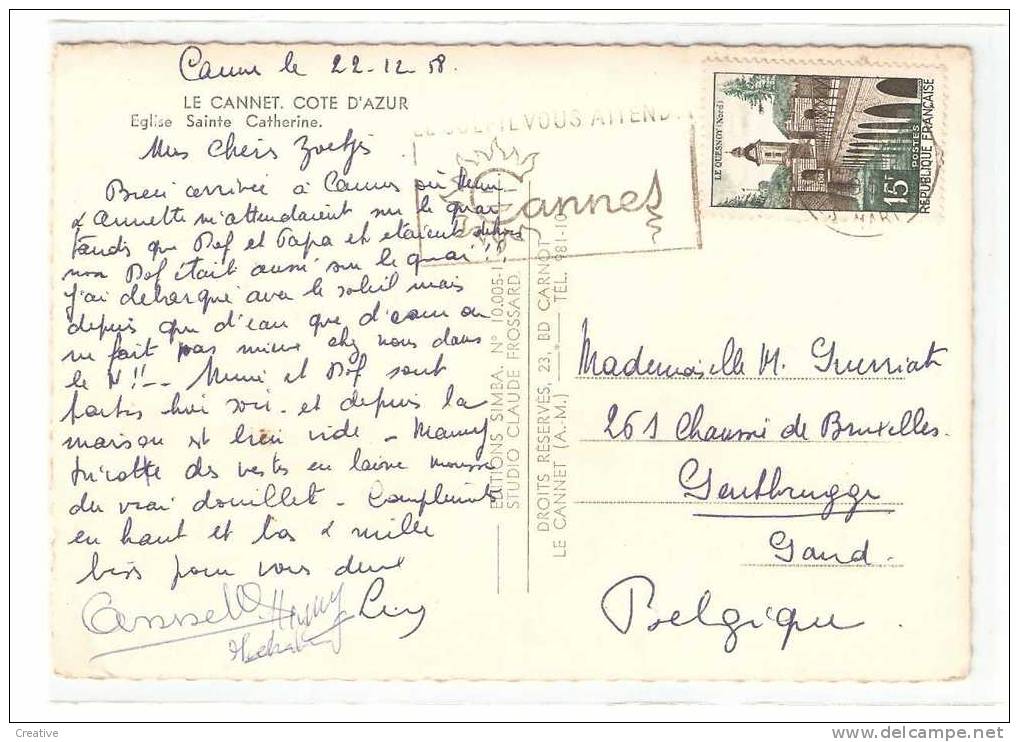 Cannes le 22-12-58.
LE CANNET. COTE D'AZUR
Eglise Sainte Catherine.
Mes chers
Bien arrivée à Cannes où
& Annette m'attendaient sur le quai
tandis que et Papa et étaient
non était aussi sur le quai!!
J'ai débarqué avec le soleil mais
depuis que d'eau que d'eau on
ne fait pas mieux chez nous dans
le N!!-- et sont
partis hier soir. et depuis la
maison est bien vide - Mamy
tricotte des vestes en laine mousse
du vrai douillet - Compliments
en haut et bas & mille
bises pour vous deux
LE SOLEIL VOUS ATTEND A
Cannes
LE QUESNOY (Nord)
15F
POSTES
REPUBLIQUE FRANÇAISE
EDITIONS SIMBA. N° 10.005-1
STUDIO CLAUDE FROSSARD.
DROITS RÉSERVÉS, 23, BD CARNOT
LE CANNET (A.-M.) TÉL. 981-10
Mademoiselle M.
261 Chaussée de Bruxelles.
Gentbrugge
Gand.
Belgique.
Creative
www.delcampe.net